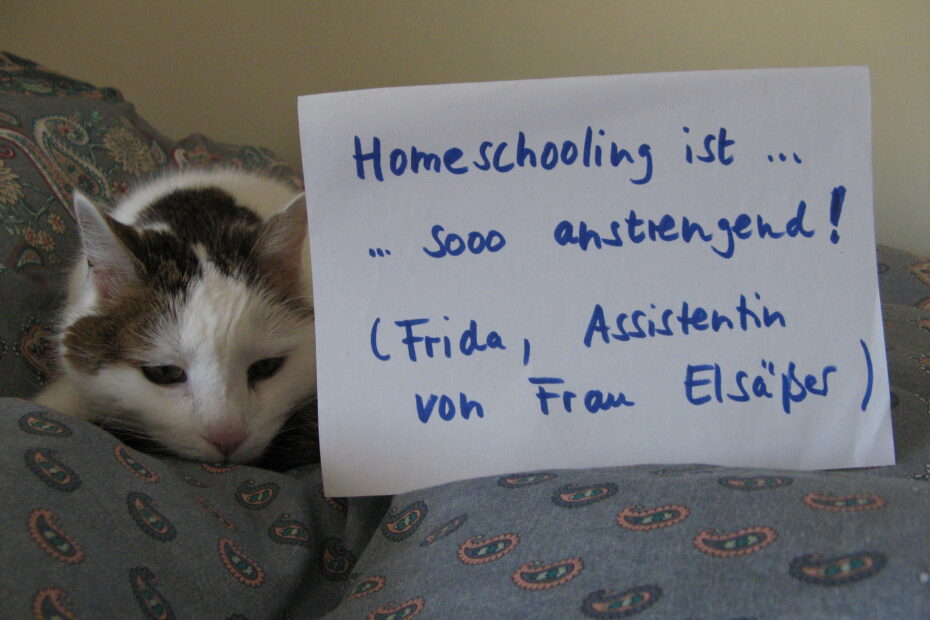 Homeschooling ist ...
... sooo anstrengend!
(Frida, Assistentin
von Frau Elsäßer)